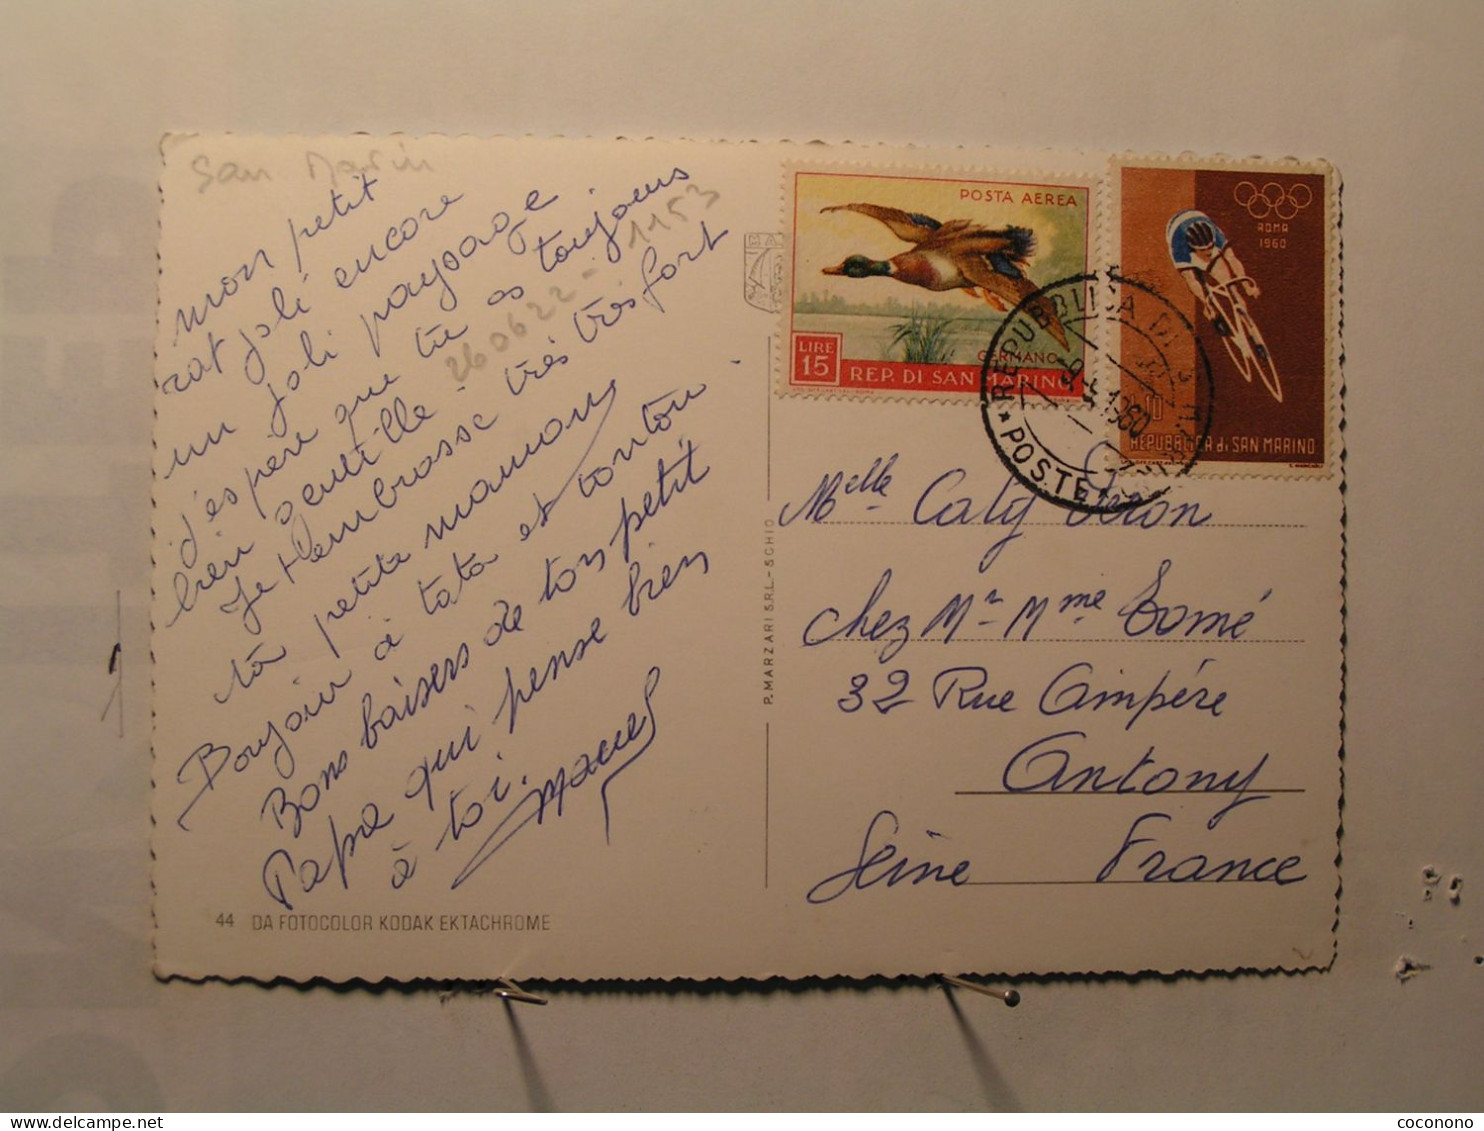 San Marin
mon petit
rat joli encore
un joli paysage
j'espère que tu es toujours
bien gentille -
Je t'embrasse très très fort
ta petite maman
Bonjour à tata et tonton -
Bons baisers de ton petit
Papa qui pense bien
à toi.
260622-1153
44 DA FOTOCOLOR KODAK EKTACHROME
P. MARZARI S.R.L. - SCHIO
POSTA AEREA
GERMANO
LIRE
15
REP. DI SAN MARINO
ROMA
1960
10
REPUBBLICA di SAN MARINO
REPUBBLICA DI
1960
POSTE
Melle Caty
chez Mr Mme Tomé
32 Rue Ampère
Antony
Seine France
coconono